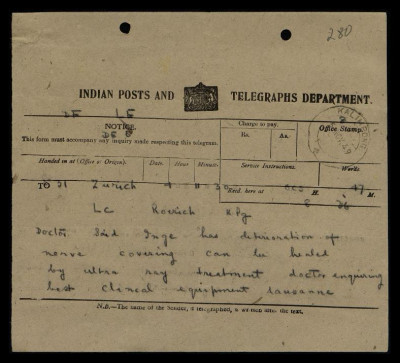 280
INDIAN POSTS AND TELEGRAPHS DEPARTMENT.
NOTICE.
This form must accompany any inquiry made respecting this telegram.
Charge to pay.
Rs. As.
Office Stamp.
Handed in at (Office of Origin). Date Hour Minute Service Instructions. Words
TO 31 Zurich 4 11 30 Recd. here at H. 47 M.
LC Roerich Kpg
Doctor said Inge has deterioration of
nerve covering can be healed
by ultra ray treatment doctor enquiring
best clinical equipment Lausanne
N.B.—The name of the Sender, if telegraphed, is written after the text.